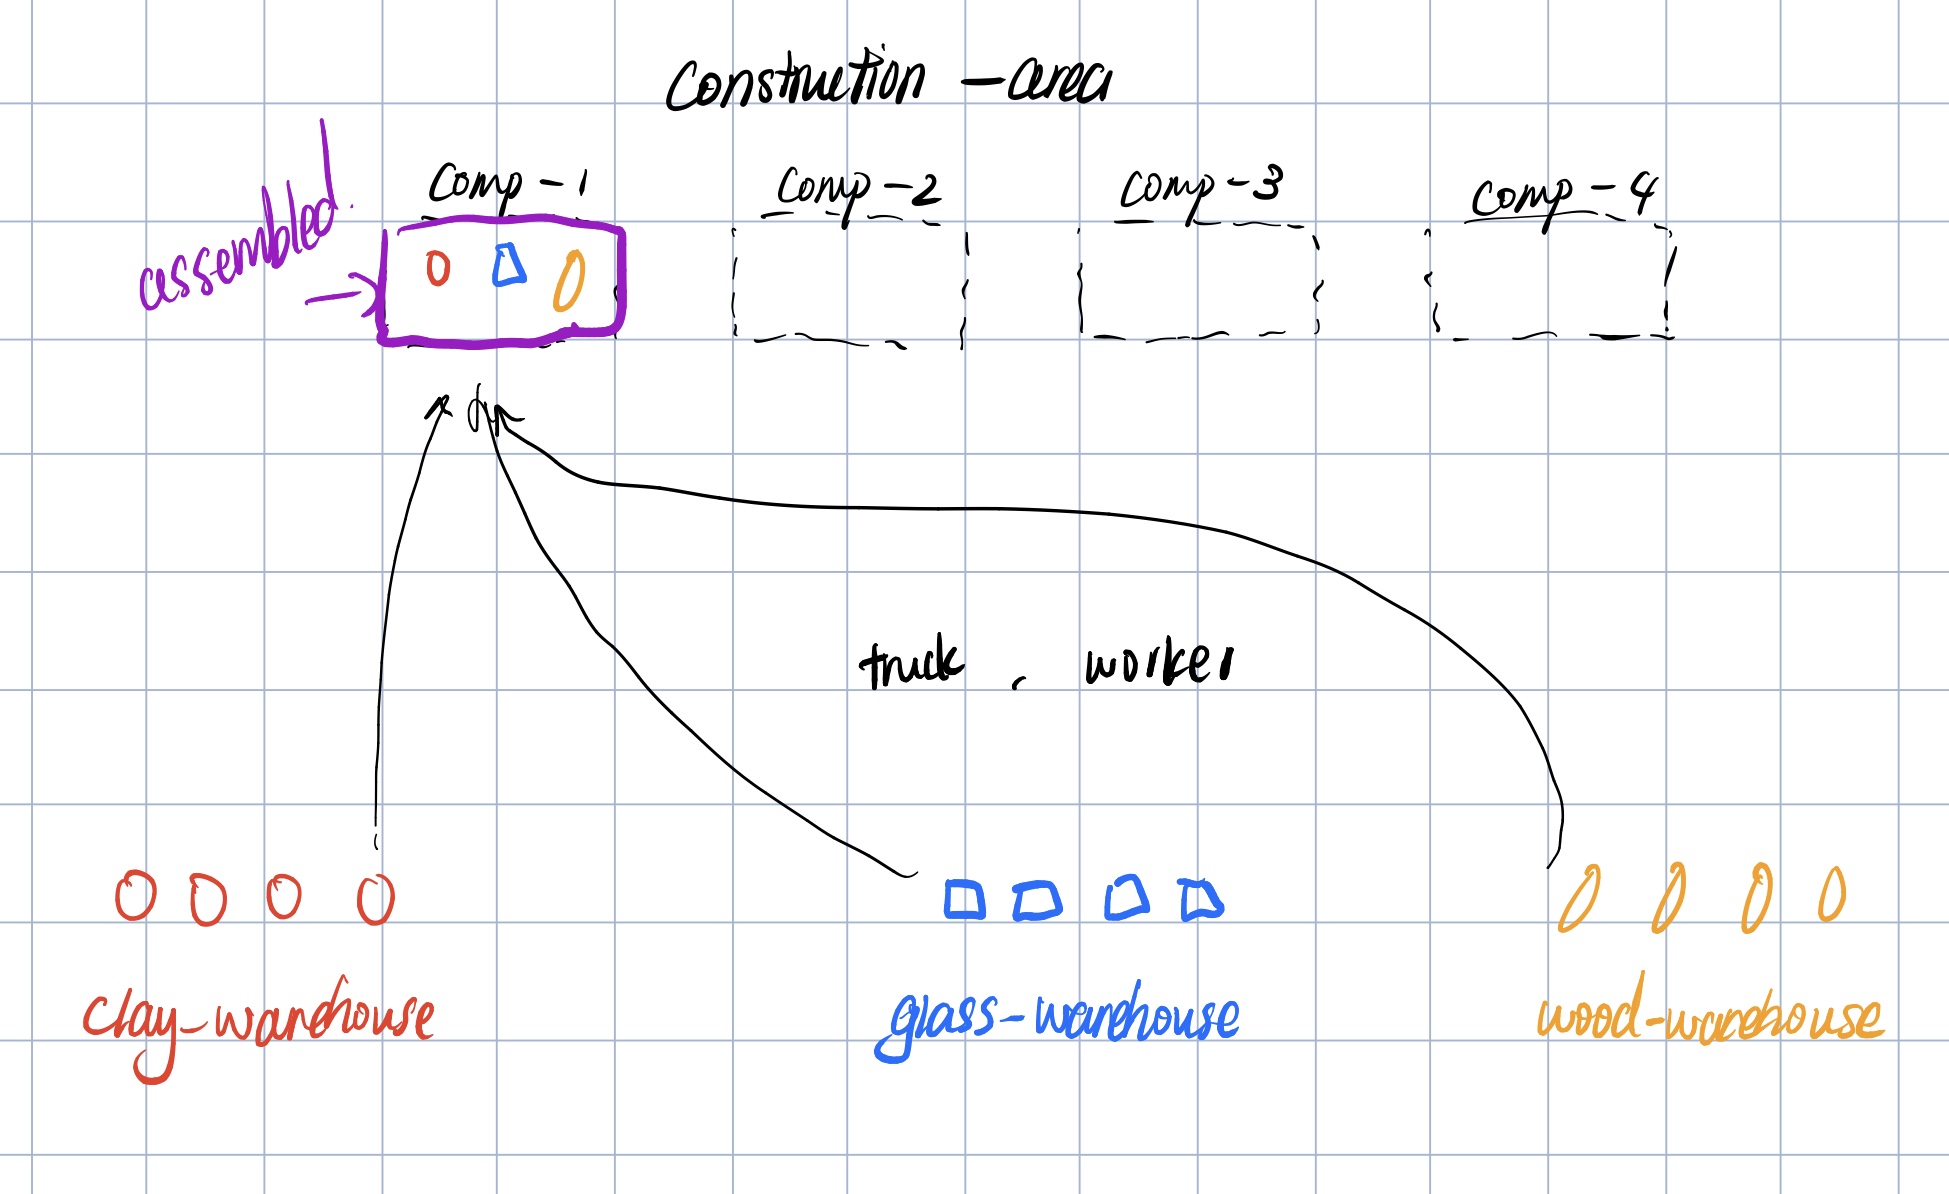 Construction - area
Comp - 1
Comp - 2
Comp - 3
Comp - 4
assembled.
truck , worker
clay-warehouse
glass-warehouse
wood-warehouse